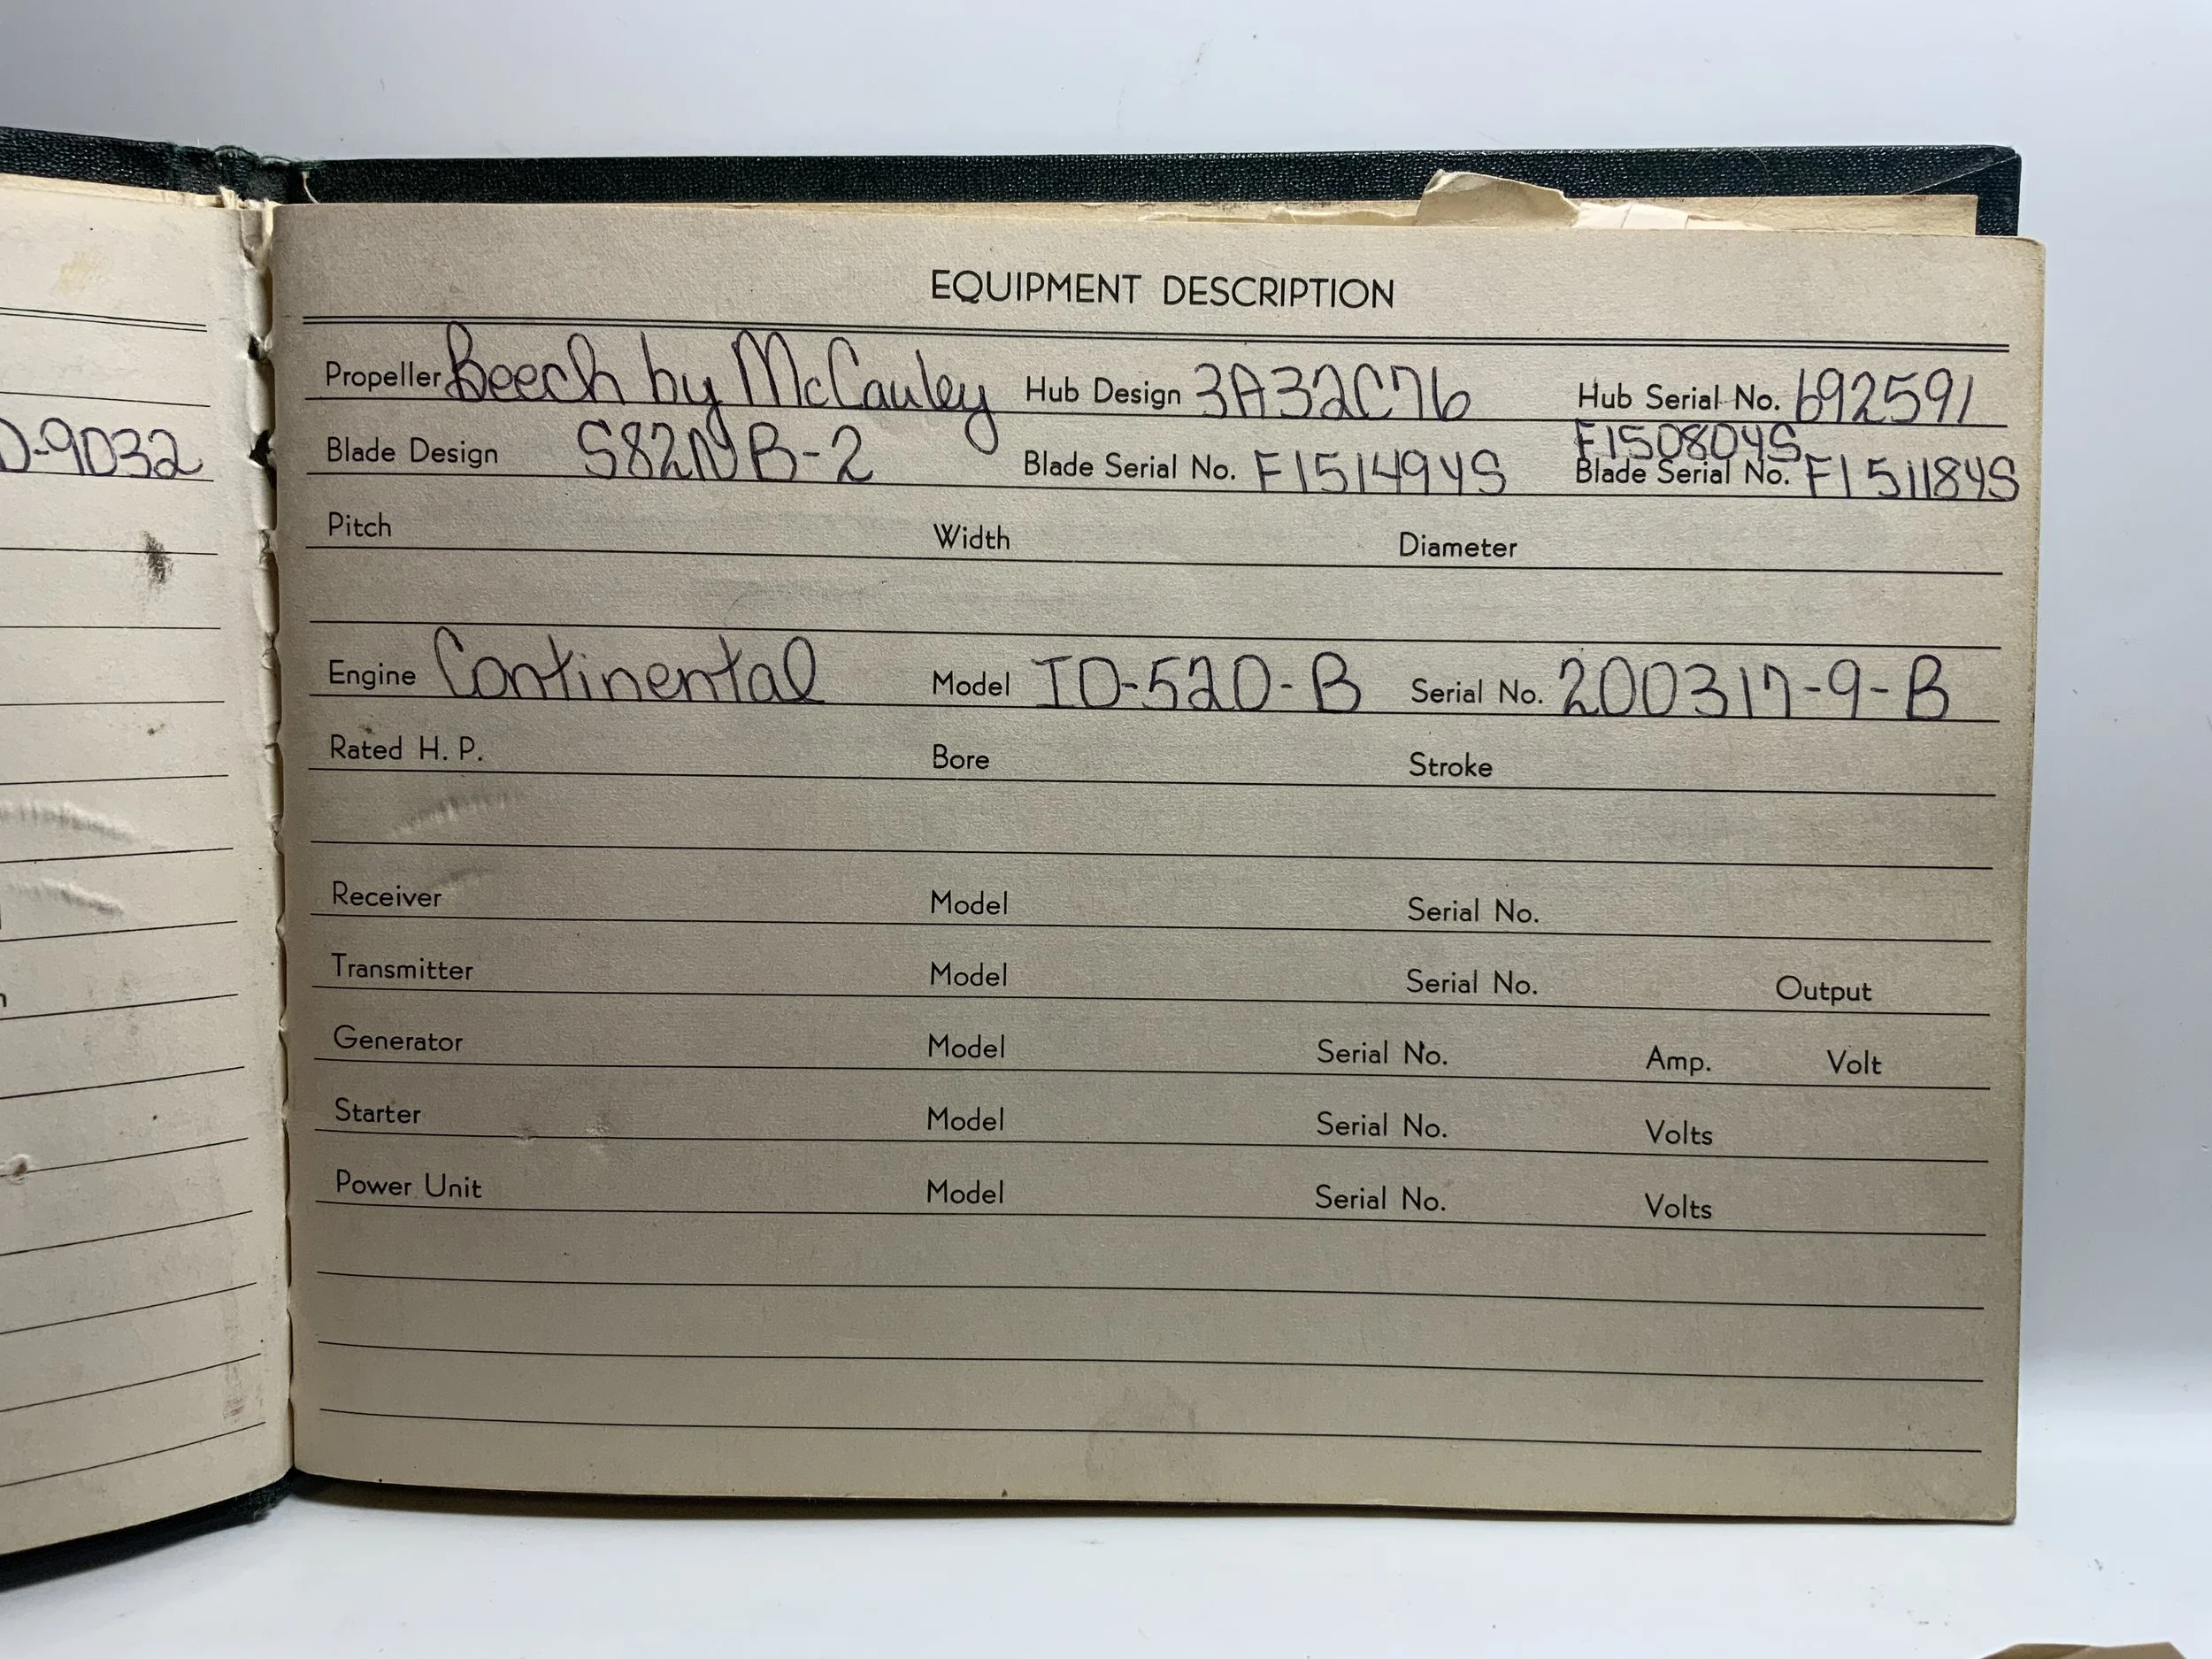 D-9032
EQUIPMENT DESCRIPTION
Propeller Beech by McCauley Hub Design 3A32C76 Hub Serial No. 692591
F150804YS
Blade Design S82NB-2 Blade Serial No. F151494YS Blade Serial No. F151184YS
Pitch Width Diameter
Engine Continental Model IO-520-B Serial No. 200317-9-B
Rated H. P. Bore Stroke
Receiver Model Serial No.
Transmitter Model Serial No. Output
Generator Model Serial No. Amp. Volt
Starter Model Serial No. Volts
Power Unit Model Serial No. Volts